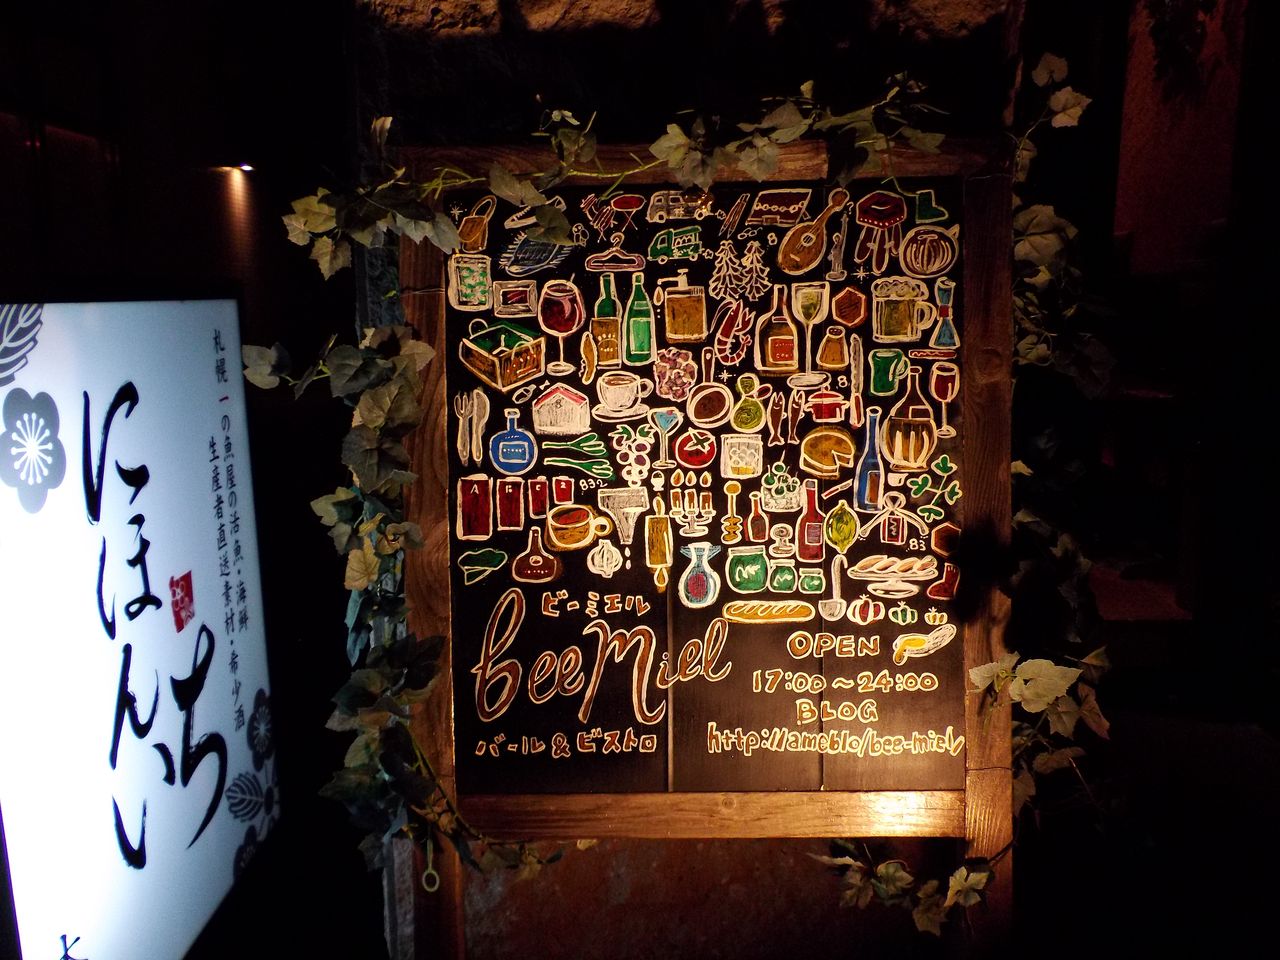 札幌一の魚屋の活魚・海鮮
生産者直送素材・希少酒
にほんいち
832
ビーミエル
bee Miel
バール & ビストロ
OPEN
17:00~24:00
BLOG
http://ameblo/bee-miel/